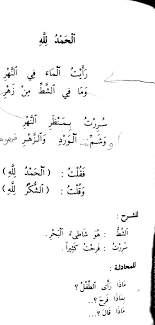 اَلْحَمْدُ لِلَّهِ
رَأَيْتُ الْمَاءَ فِي النَّهْرِ
وَمَا فِي الشَّطِّ مِنْ زَهْرِ
سُرِرْتُ بِمَنْظَرِ النَّهْرِ
وَشَمِّ الْوَرْدِ وَالزَّهْرِ
فَقُلْتُ : (اَلْحَمْدُ لِلَّهِ)
وَقُلْتُ : (اَلشُّكْرُ لِلَّهِ)
الشرح :
الشَّطُّ : هُوَ شَاطِئُ الْبَحْرِ.
سُرِرْتُ : فَرِحْتُ كَثِيراً.
المحادثة :
مَاذَا رَأَى الطِّفْلُ ؟
بِمَاذَا فَرِحَ ..؟
مَاذَا قَالَ ..؟